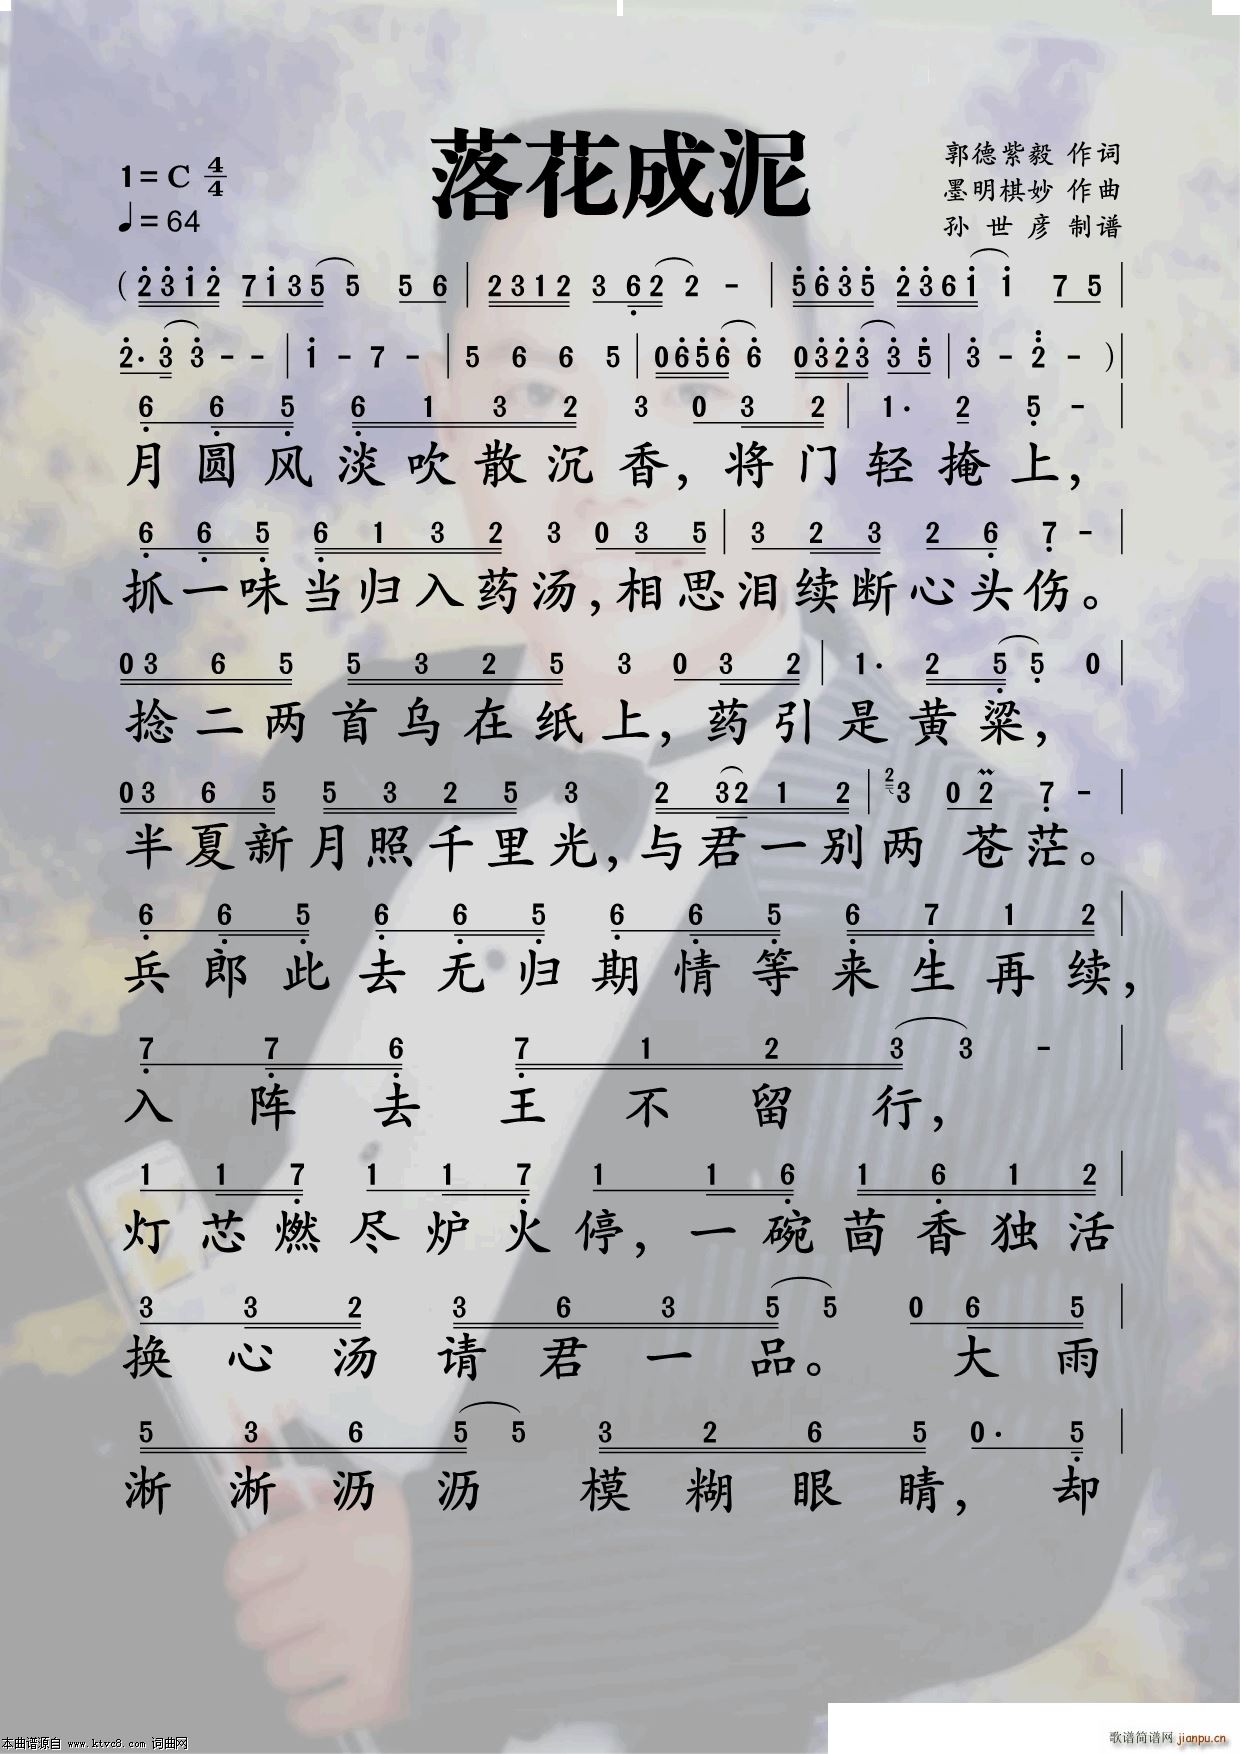 落花成泥
1=C 4/4
♩=64
郭德紫毅 作词
墨明棋妙 作曲
孙世彦 制谱
( 2 3 1 2 7 1 3 5 5 5 6 | 2 3 1 2 3 6 2 2 - | 5 6 3 5 2 3 6 1 1 7 5 |
2· 3 3 - - | 1 - 7 - | 5 6 6 5 | 0 6 5 6 6 0 3 2 3 3 5 | 3 - 2 - ) |
6 6 5 6 1 3 2 3 0 3 2 | 1· 2 5 - |
月圆风淡吹散沉香，将门轻掩上，
6 6 5 6 1 3 2 3 0 3 5 | 3 2 3 2 6 7 - |
抓一味当归入药汤，相思泪续断心头伤。
0 3 6 5 5 3 2 5 3 0 3 2 | 1· 2 5 5 0 |
捻二两首乌在纸上，药引是黄粱，
0 3 6 5 5 3 2 5 3 2 3 2 1 2 | 2 3 0 2 7 - |
半夏新月照千里光，与君一别两苍茫。
6 6 5 6 6 5 6 6 5 6 7 1 2 |
兵郎此去无归期情等来生再续，
7 7 6 7 1 2 3 3 - |
入阵去王不留行，
1 1 7 1 1 7 1 1 6 1 6 1 2 |
灯芯燃尽炉火停，一碗茴香独活
3 3 2 3 6 3 5 5 0 6 5 |
换心汤请君一品。 大雨
5 3 6 5 5 3 2 6 5 0· 5 |
淅淅沥沥 模糊眼睛，却
本曲谱源自 www.ktvc8.com 词曲网
歌谱简谱网 jianpu.cn